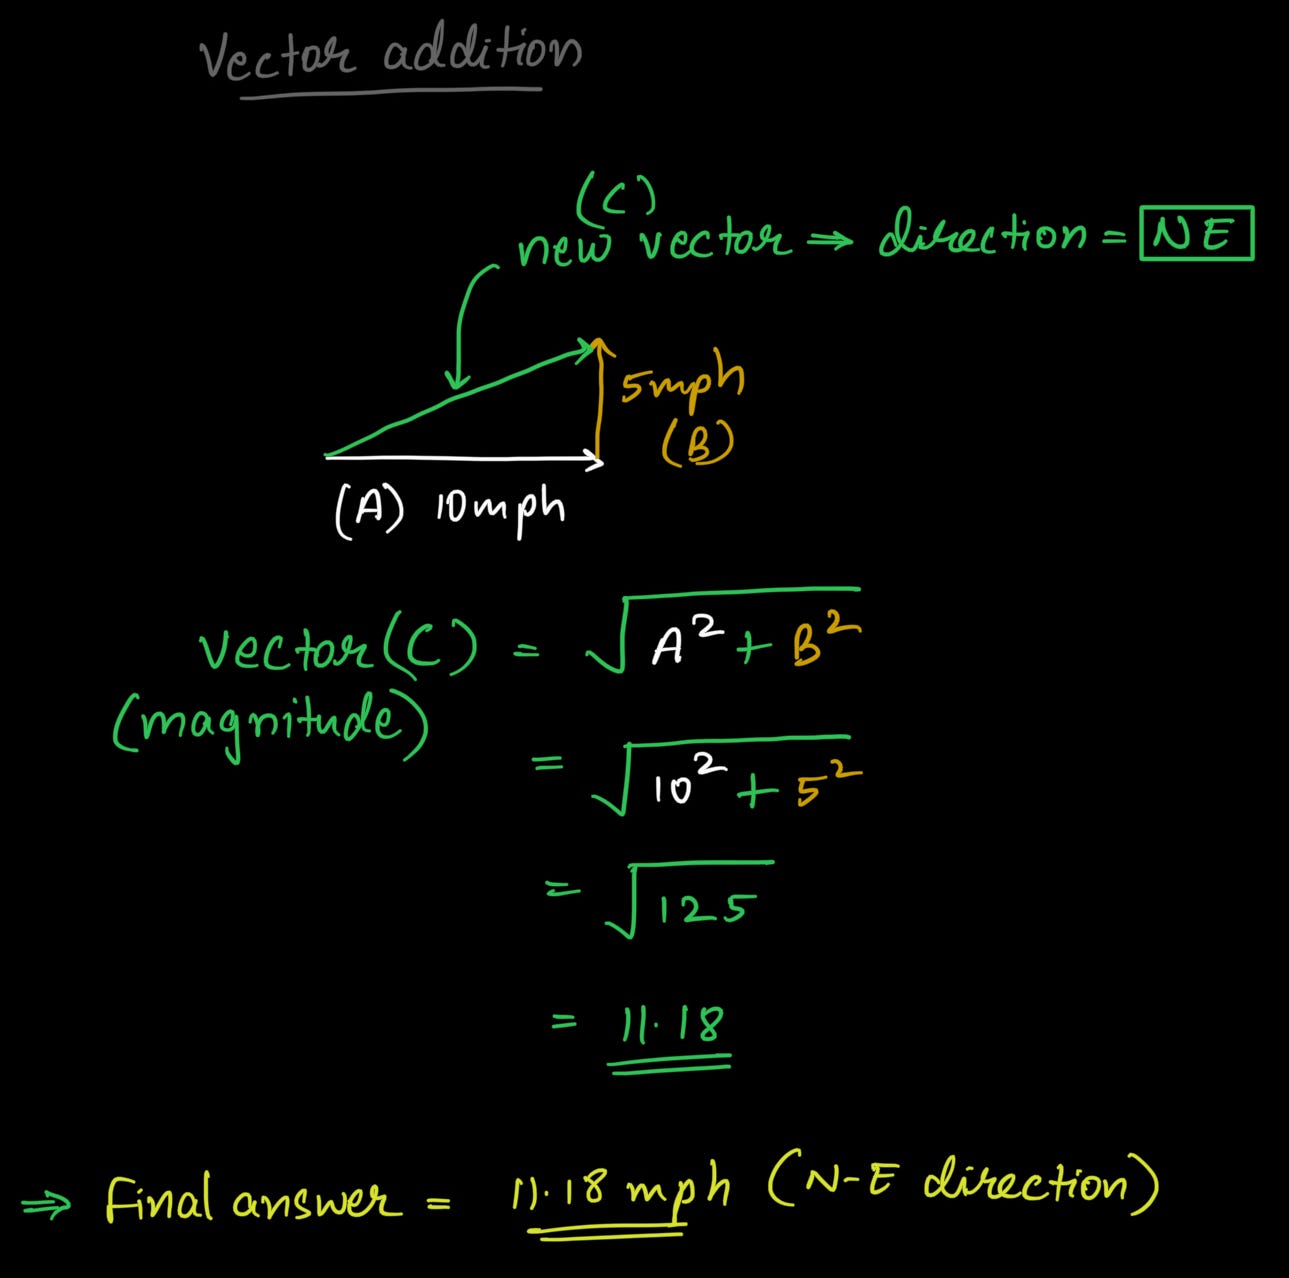 Vector addition
(C)
new vector ⇒ direction = NE
5mph
(B)
(A) 10mph
vector(C) = √A² + B²
(magnitude)
= √10² + 5²
= √125
= 11.18
⇒ Final answer = 11.18 mph (N-E direction)